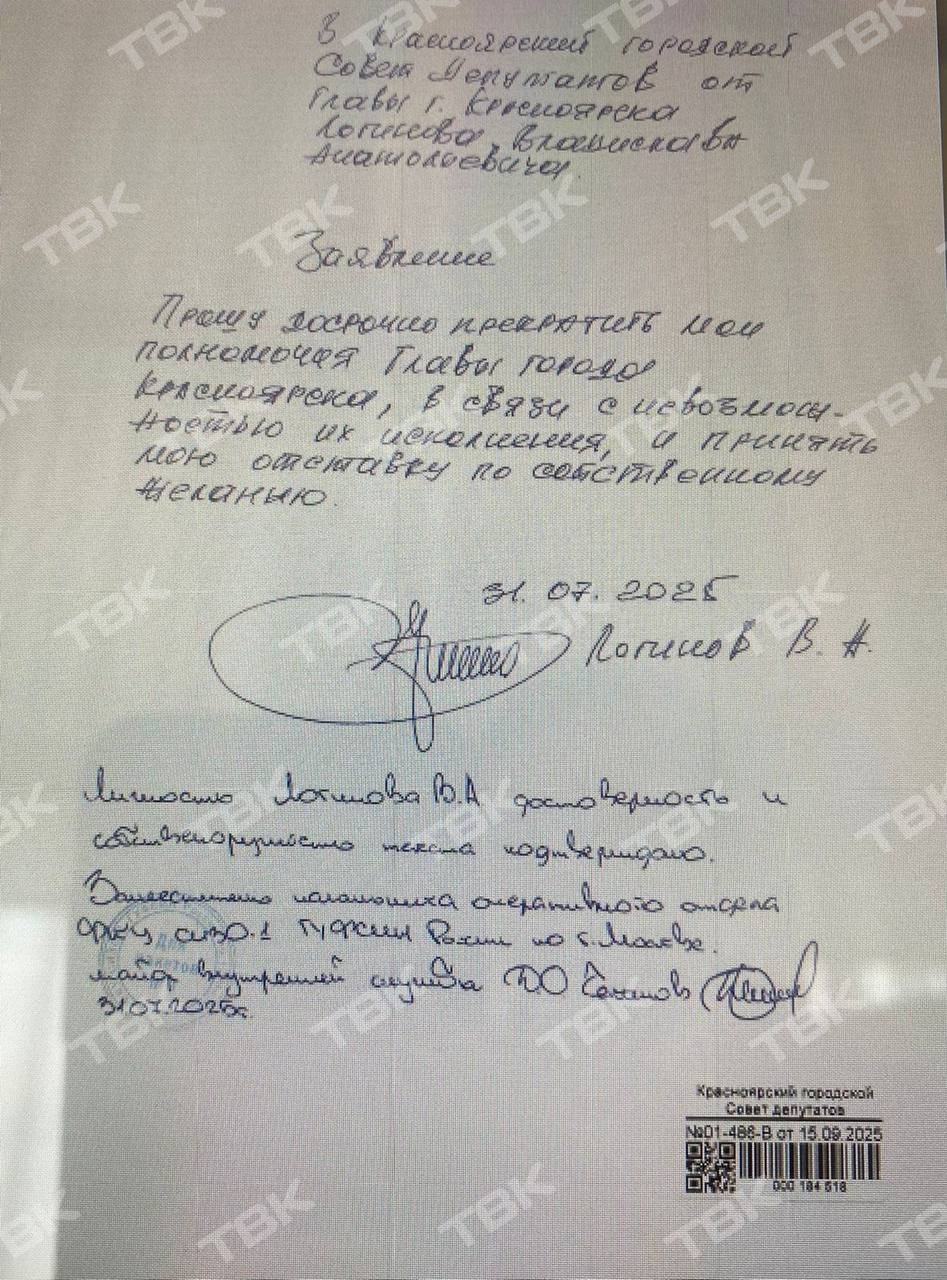 В Красноярский городской
Совет Депутатов от
Главы г. Красноярска
Логинова Владислава
Анатольевича.
Заявление
Прошу досрочно прекратить мои
полномочия Главы города
Красноярска, в связи с невозмож-
ностью их исполнения, и принять
мою отставку по собственному
желанию.
31. 07. 2025
Логинов В. А.
Личность Логинова В.А достоверность и
собственоручность текста подтверждаю.
Заместитель начальника оперативного отдела
СИЗО-1 России по г. Москве.
майор внутренней службы Д.О
31.07.2025г.
Красноярский городской
Совет депутатов
№01-486-В от 15.09.2025
000 184 518
ТВК